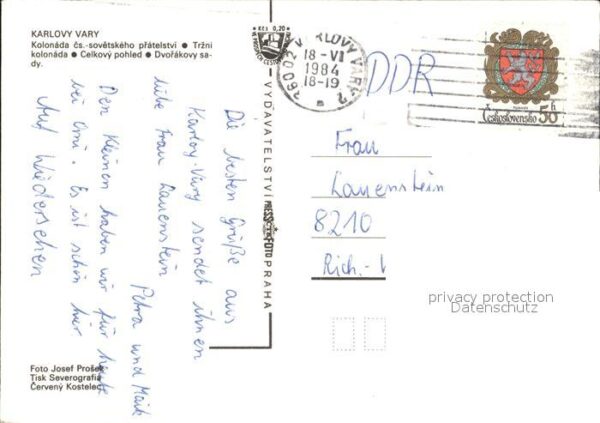 KARLOVY VARY
Kolonáda čs.-sovětského přátelství ● Tržní
kolonáda ● Celkový pohled ● Dvořákovy sa-
dy.
Die besten Grüße aus
Karlovy-Vary sendet ihnen
liebe Frau Lauenstein
Petra und Maik
Den Kleinen haben wir für heute
bei Omi. Es ist schön hier
Auf Wiedersehen
Foto Josef Prošek
Tisk Severografia
Červený Kostelec
VYDAVATELSTVÍ PRESSFOTO PRAHA
Kčs 0,20
360 02 KARLOVY VARY 2
18-VI
1984
18-19
DDR
Československo 50 h
Frau
Lauenstein
8210
privacy protection
Datenschutz